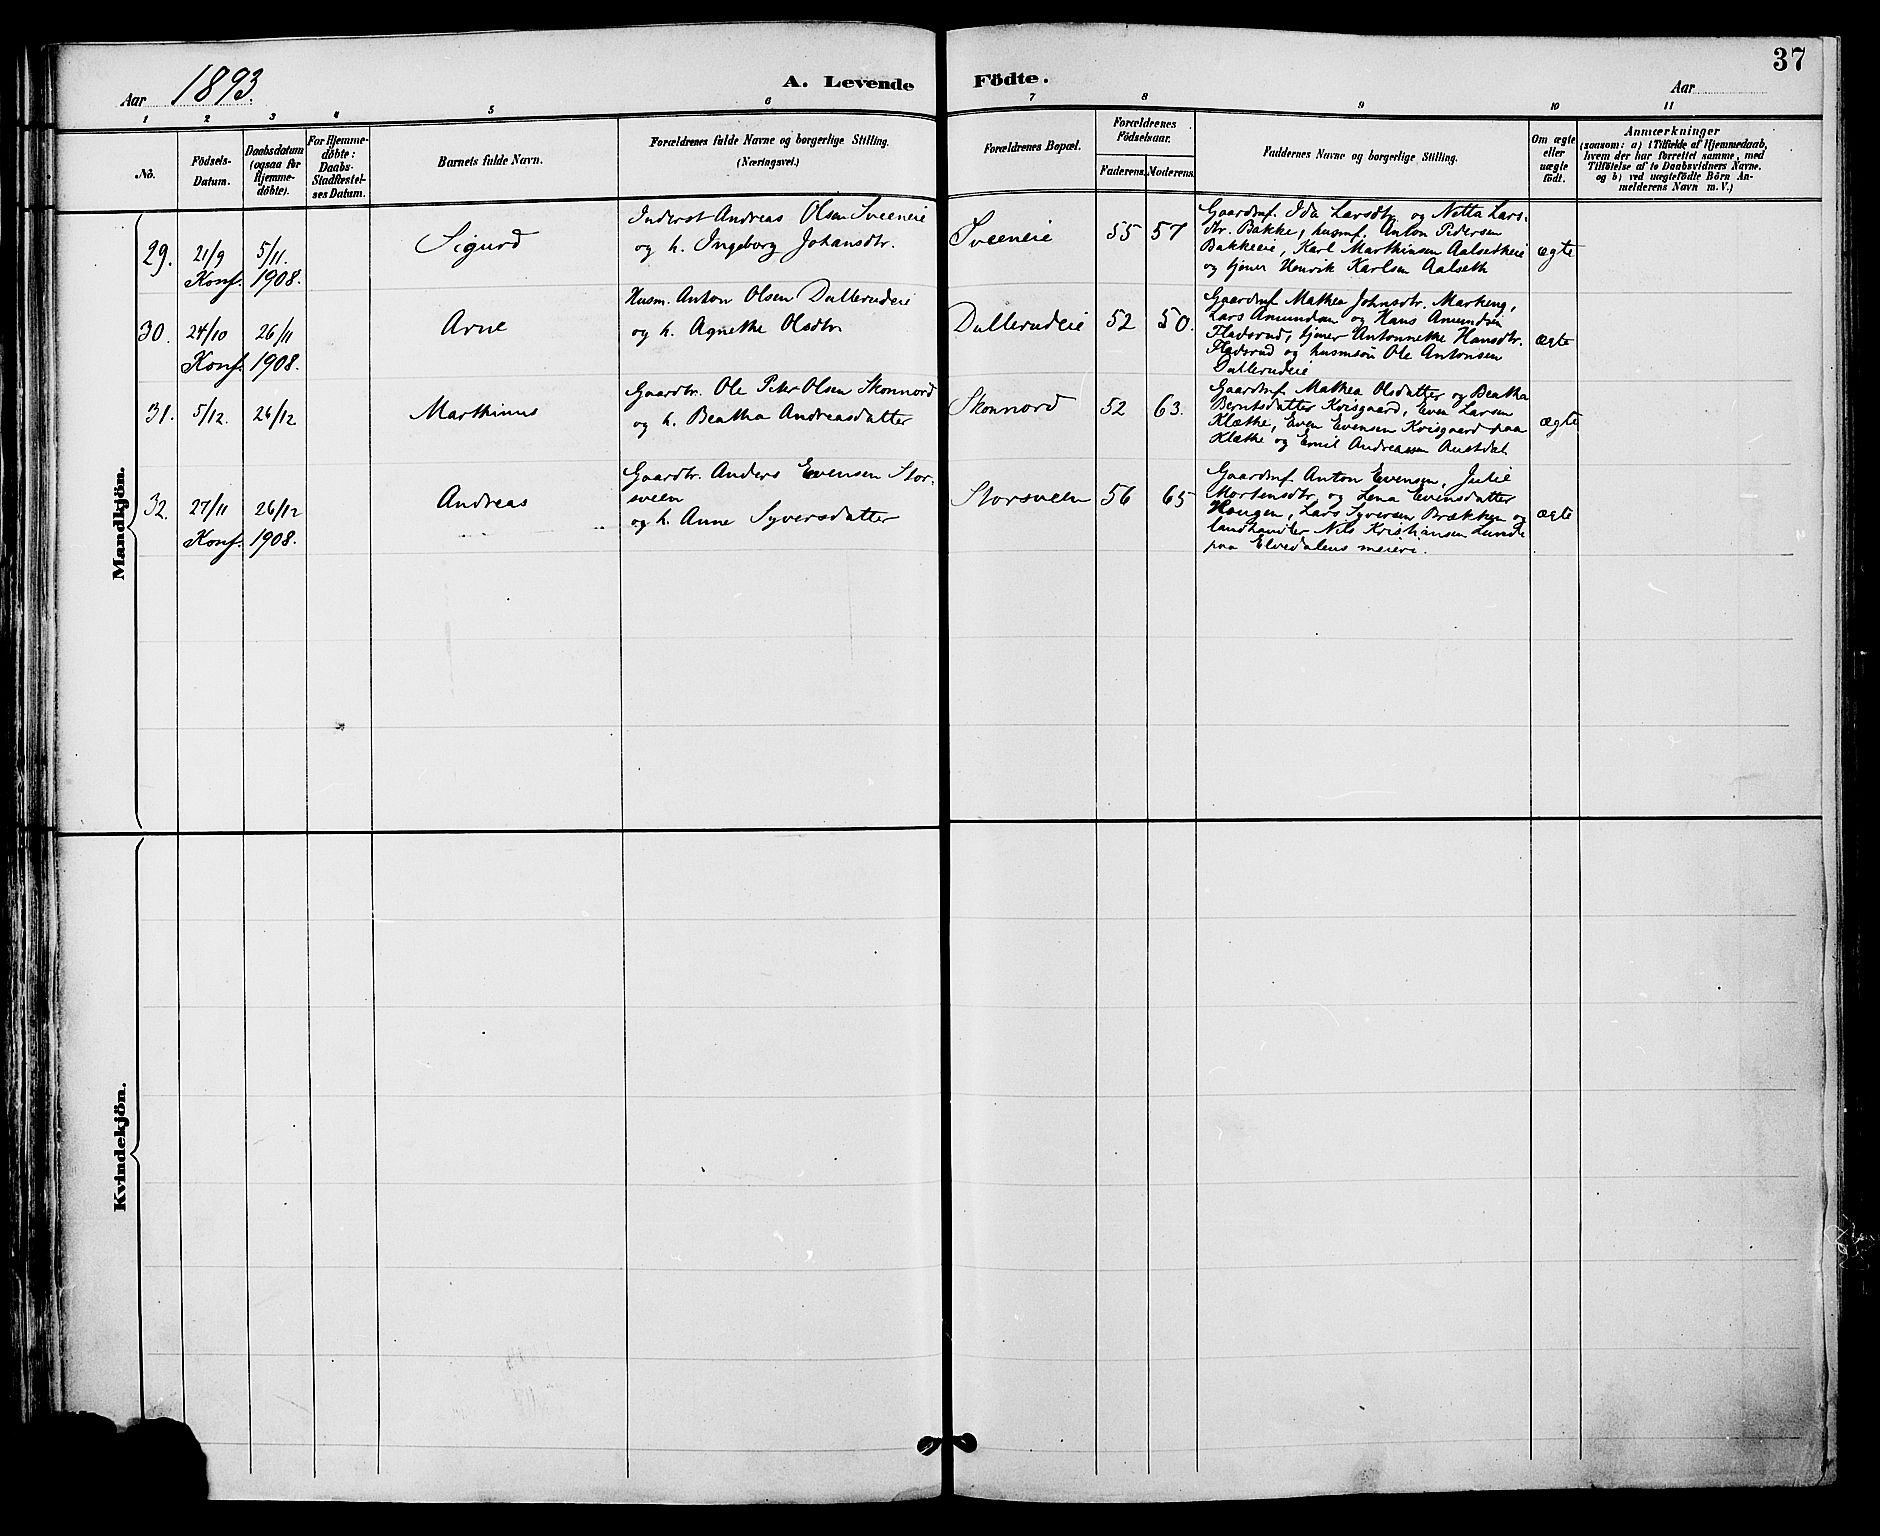 37
Aar 1893. A. Levende Födte. Aar
1 2 3 4 5 6 7 8 9 10 11
No.
Födsels-Datum.
Daabsdatum (ogsaa for Hjemmedöbte).
For Hjemmedöbte: Daabs-Stadfæstelses Datum.
Barnets fulde Navn.
Forældrenes fulde Navne og borgerlige Stilling.
(Næringsvei.)
Forældrenes Bopæl.
Forældrenes Födselsaar.
Faderens. Moderens.
Faddernes Navne og borgerlige Stilling.
Om ægte eller uægte födt.
Anmærkninger
(saasom: a) i Tilfælde af Hjemmedaab,
hvem der har forrettet samme, med
Tilföielse af to Daabsvidners Navne.
og b) ved uægtefödte Börn An-
melderens Navn m. V.)
Mandkjön.
29. 21/9 5/11. Sigurd
Konf. 1908.
Inderst Andreas Olsen Sveeneie
og h. Ingeborg Johansdtr.
Sveeneie 55 57
Gaardmf. Ida Larsdtr. og Netta Lars-
dtr. Bakke, husmf. Anton Pedersen
Bakkeeie, Karl Marthinsen Aalsetheie
og tjener Henrik Karlsen Aalseth
ægte
30. 24/10 26/11 Arne
Konf. 1908.
Husm. Anton Olsen Dullerudeie
og h. Agnethe Olsdtr
Dullerudeie 52 50.
Gaardmf Mathea Johnsdtr. Markeng,
Lars Amundsen og Hans Amundsen
Fladsrud, tjener Antonnethe Hansdtr.
Fladsrud og husmsön Ole Antonsen
Dullerudeie
ægte
31. 5/12. 26/12 Marthinus
Gaardbr. Ole Peter Olsen Skonnord
og h. Beatha Andreasdatter
Skonnord 52 63.
Gaardmf. Mathea Olsdatter og Beatha
Berntsdatter Kvisgaard, Even Larsen
Klæthe, Even Evensen Kvisgaard paa
Klæthe og Emil Andreassen Austdal
ægte
32. 27/11 26/12 Andreas
Konf. 1908.
Gaardbr. Anders Evensen Stor-
sveen
og h. Anne Syversdatter
Storsveen 56 65
Gaardmf Anton Evensen, Julie
Mortensdtr. og Lena Evensdatter
Haugen, Lars Syversen Brækken og
landhandler Nils Kristiansen Lunde
paa Elvedalens meieri.
ægte
Kvindekjön.